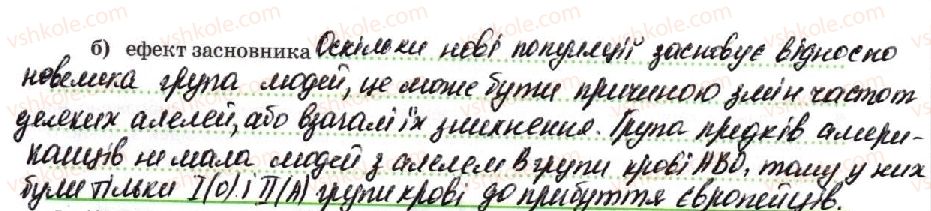 б) ефект засновника Оскільки нові популяції засновує відносно
невелика група людей, це може бути причиною змін частот
деяких алелей, або взагалі їх зникнення. Група предків амери-
канців не мала людей з алелем В групи крові АВО, тому у них
були тільки I(0) і II(А) групи крові до прибуття європейців.